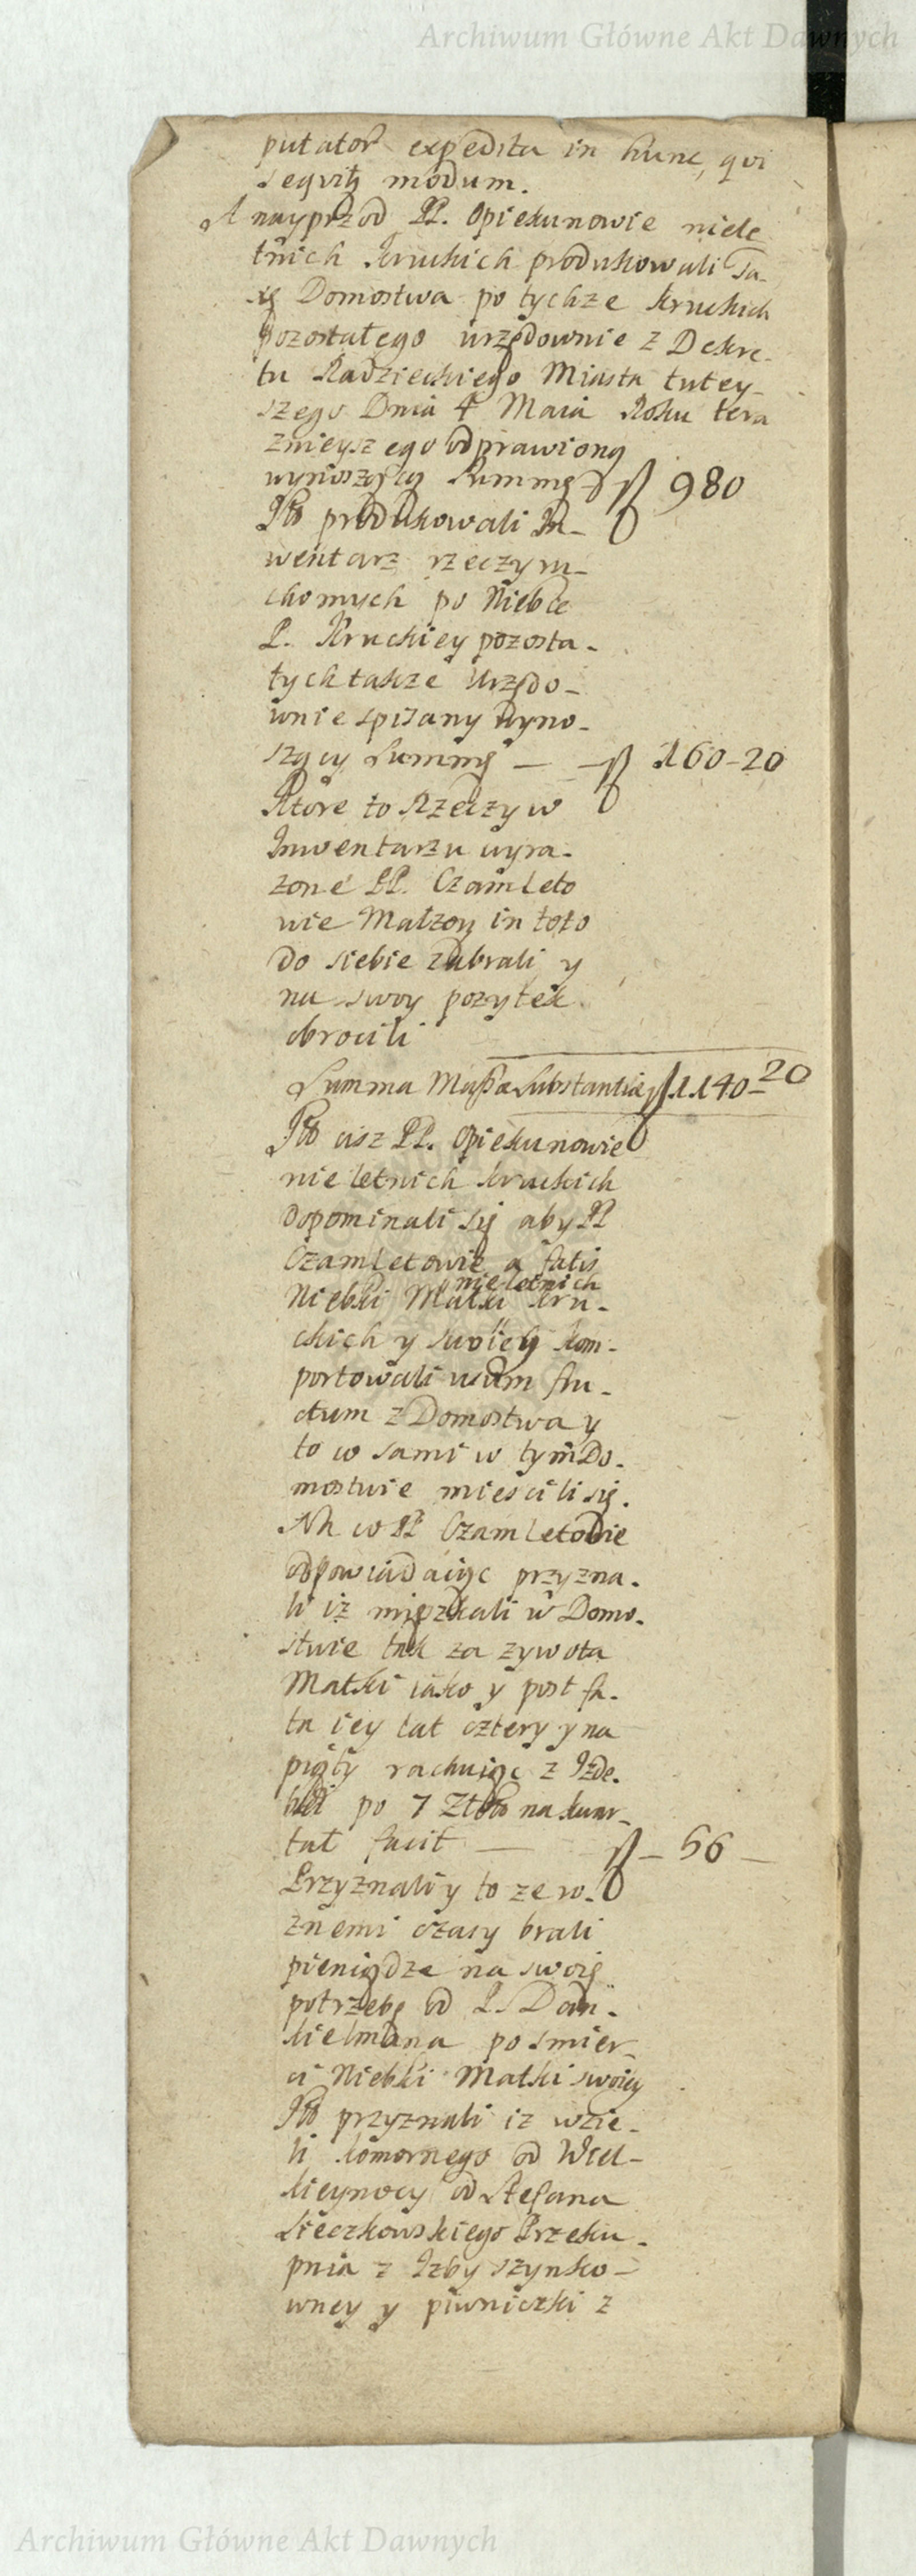 Archiwum Główne Akt Dawnych
putator expedita in hunc, qvi
seqvitȝ modum.
A nayprzod PP. Opiekunowie niele
tnich Kruckich produkowali Ta-
xę Domostwa po tychze Kruckich
pozostałego urzędownie z Dekre-
tu Radzieckiego Miasta tutey-
szego Dnia 4 Maia Roku tera
znieyszego odprawioną
wynoszącą Summę fl 980
Itō produkowali In-
wentarz rzeczy ru-
chomych po Niebce
P. Kruckiey pozosta-
łych takze Urzędo-
wnie spisany wyno-
szący Summę — — fl 160-20
Ktore to Rzeczy w
Inwentarzu wyra-
zone PP. Czamleto
wie Małzon in toto
do siebie zabrali y
na swoy pozytek
obrocili
Summa Massa Substantiæ fl 1140-20
Itō ciz PP. Opiekunowie
nieletnich Kruckich
dopominali się aby PP
Czamletowie a fatis
nieletnich
Niebki Matki Kru-
ckich y swoiey kom-
portowali usum fru-
ctum z Domostwa y
to co sami w tym Do-
mostwie mieścili się.
Na co PP Czamletowie
odpowiadaiąc przyzna-
li iz mięzkali w Domo-
stwie tak za zywota
Matki iako y post fa-
ta iey lat cztery y na
piąty rachuiąc z Izde-
bki po 7 Złto na kwar-
tał facit — fl — 56 —
Przyznali y to ze ro-
znemi czasy brali
pieniądze na swoię
potrzebę od P. Dan-
kielmana po smier-
ci Niebki Matki swoiey
Itō przyznali iz wzie-
li komornego od Wiel-
kieynocy od Stefana
Sieczkowskiego Przeku-
pnia z Izby szynko-
wney y piwniczki z
Archiwum Główne Akt Dawnych